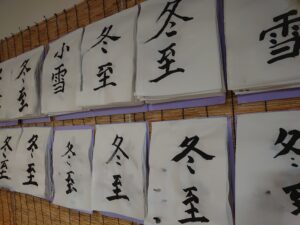 冬至
小雪
冬至
冬至
雪
冬至
冬至
冬至
冬至
冬至
冬